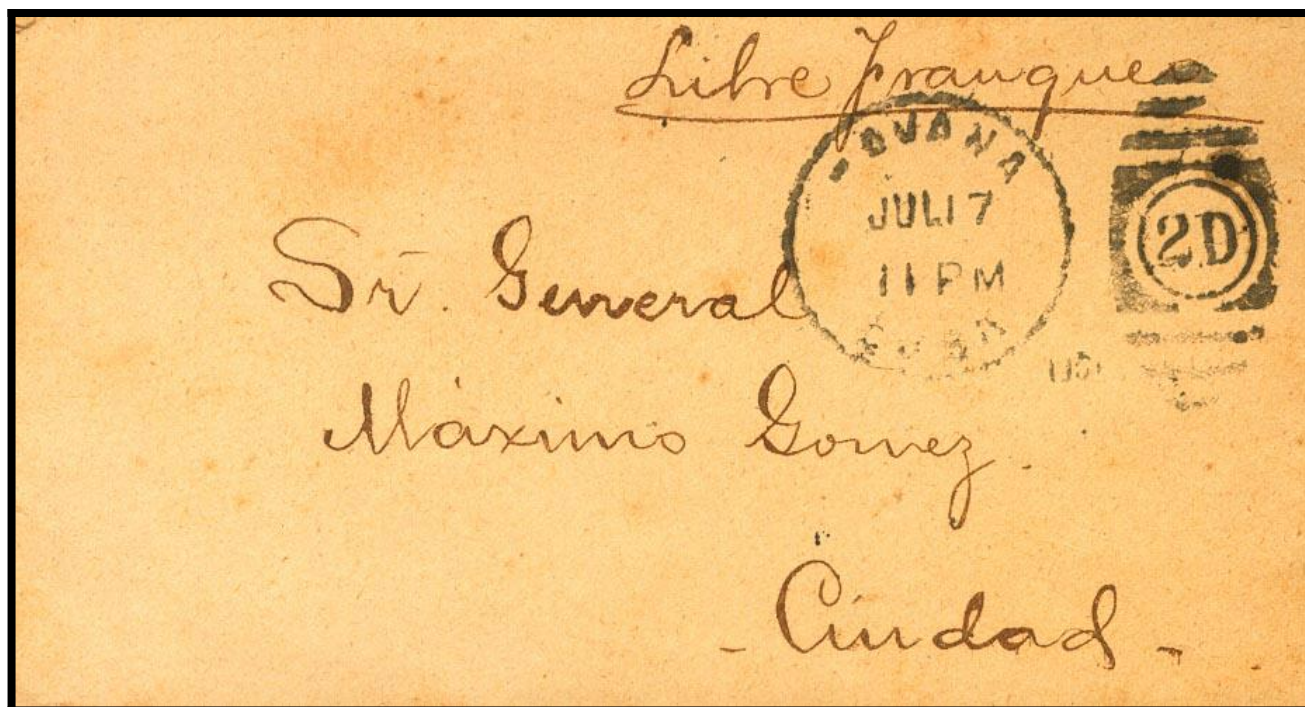 Libre franqueo
JUL 17
11 PM
2D
Sr. General
Máximo Gomez.
- Ciudad -